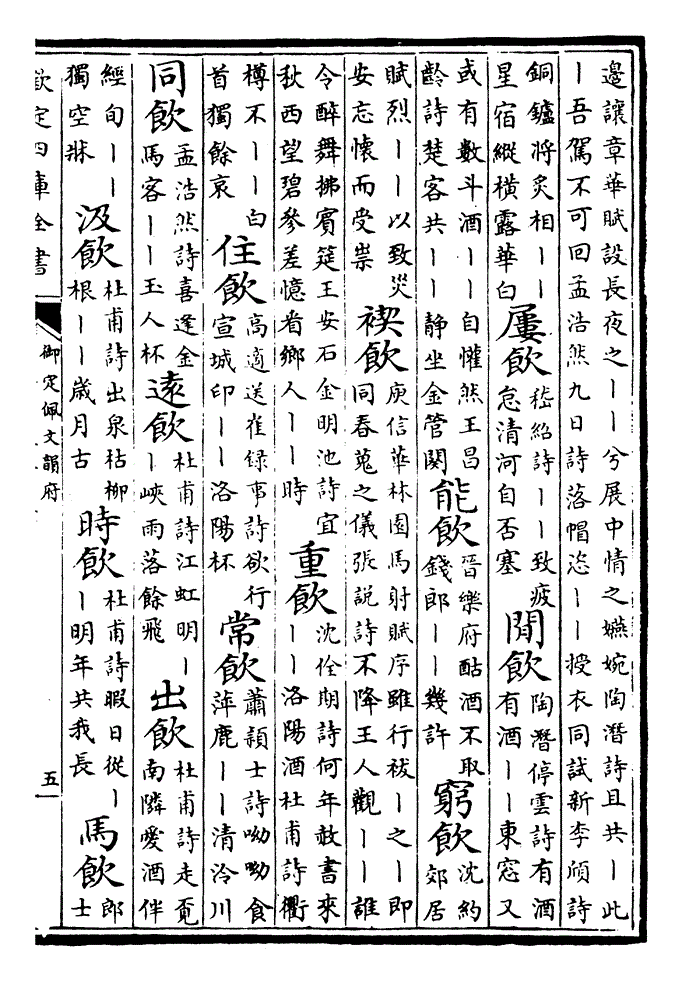 邊讓章華賦設長夜之丨丨兮展中情之嬿婉陶潛詩且共丨此
丨吾駕不可回孟浩然九日詩落帽恣丨丨授衣同試新李頎詩
銅鑪將炙相丨丨
星宿縱橫露華白
屢飲
嵇紹詩丨丨致疲
怠清河自否塞
閒飲
陶潛停雲詩有酒
有酒丨丨東窓又
或有數斗酒丨丨自懽然王昌
齡詩楚客共丨丨靜坐金管闋
能飲
晉樂府酤酒不取
錢郎丨丨幾許
窮飲
沈約
郊居
賦烈丨丨以致災
安忘懷而受祟
禊飲
庾信華林園馬射賦序雖行祓丨之丨即
同春蒐之儀張説詩不降王人觀丨丨誰
令醉舞拂賓筵王安石金明池詩宜
秋西望碧參差憶看鄉人丨丨時
重飲
沈佺期詩何年赦書來
丨丨洛陽酒杜甫詩衢
樽不丨丨白
首獨餘哀
住飲
高適送崔録事詩欲行
宣城印丨丨洛陽杯
常飲
蕭穎士詩呦呦食
萍鹿丨丨清泠川
同飲
孟浩然詩喜逢金
馬客丨丨玉人杯
遠飲
杜甫詩江虹明丨
丨峽雨落餘飛
出飲
杜甫詩走覓
南隣愛酒伴
經旬丨丨
獨空牀
汲飲
杜甫詩出泉枯柳
根丨丨歲月古
時飲
杜甫詩暇日從丨
丨明年共我長
馬飲
郎
士
欽定四庫全書
御定佩文韻府
五